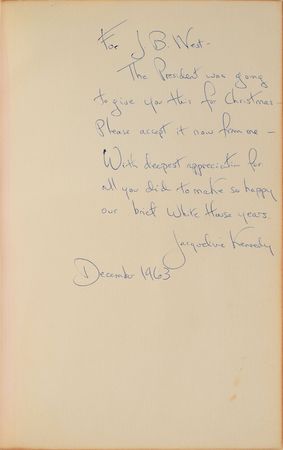 For J B. West -
The President was going
to give you this for Christmas -
Please accept it now from me -
With deepest appreciation for
all you did to make so happy
our brief White House years.
Jacqueline Kennedy
December 1963